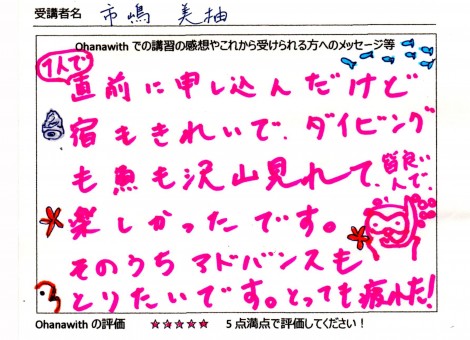 受講者名 市嶋 美柚
Ohanawith での講習の感想やこれから受けられる方へのメッセージ等
1人で
直前に申し込んだけど
宿もきれいで、ダイビング
も魚も沢山見れて、皆良い人で、
楽しかったです。
そのうちアドバンスも
とりたいです。とっても疲れた!
Ohanawith の評価 ★★★★★ 5 点満点で評価してください!